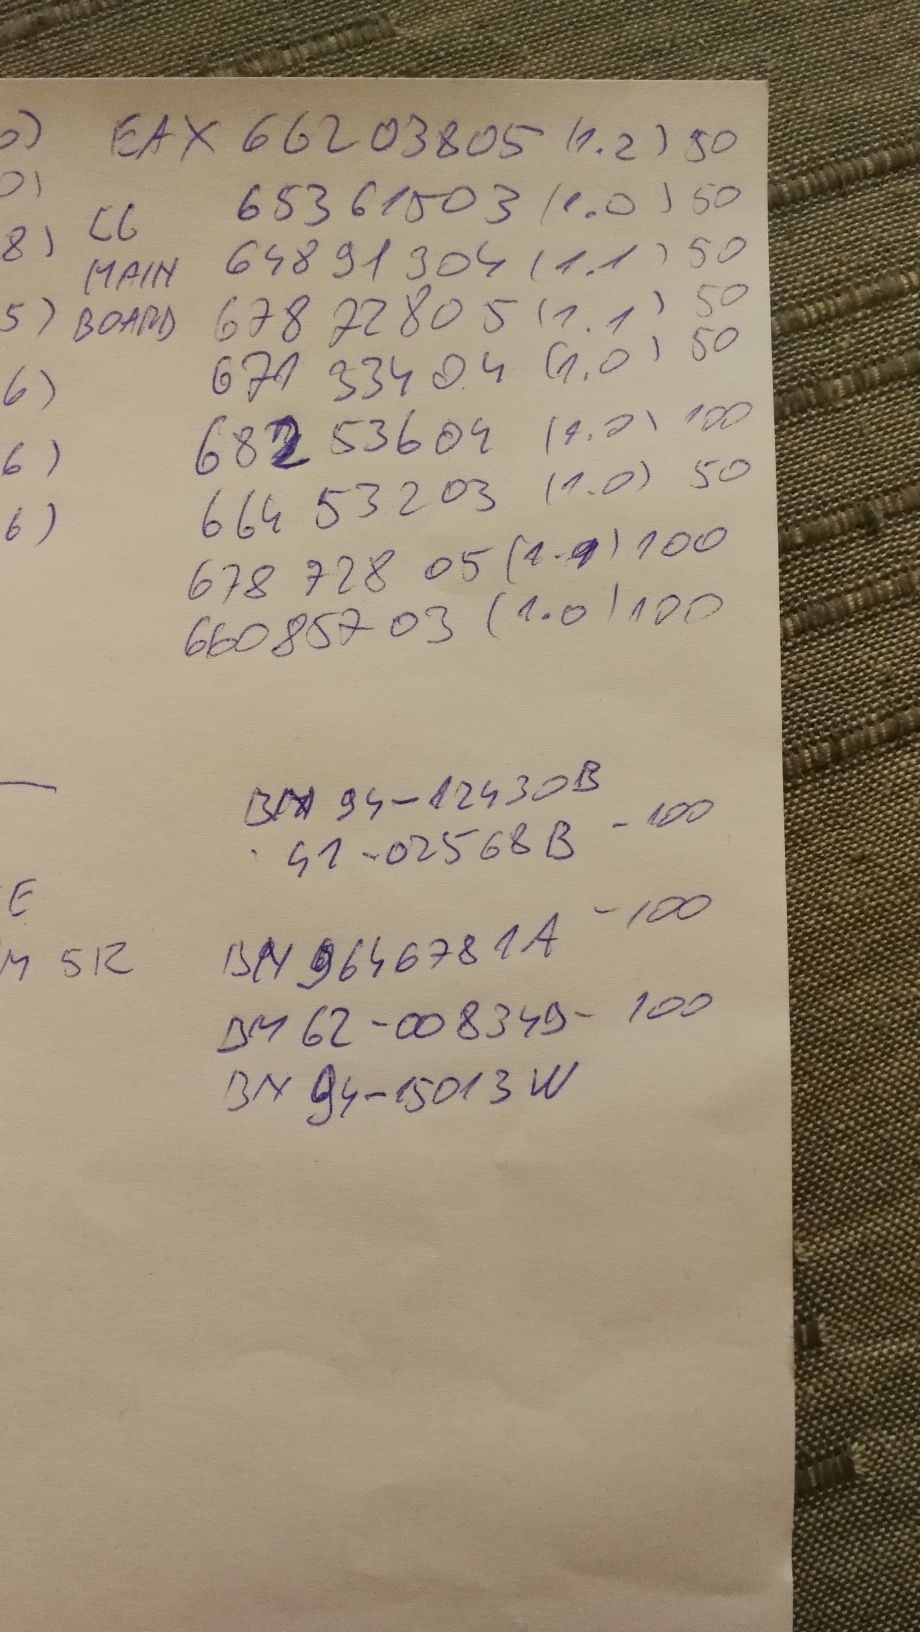 0) EAX 66203805 (1.2) 50
0) 65361503 (1.0) 50
8) LG 64891304 (1.1) 50
MAIN
5) BOARD 67872805 (1.1) 50
6) 67133404 (1.0) 50
6) 68253604 (1.0) 100
6) 66453203 (1.0) 50
678 728 05 (1.1) 100
66085703 (1.0) 100
BN 94-12430B
41-02568B - 100
E
M 5R BN 9646781A - 100
BN 62-00834B - 100
BN 94-15013W